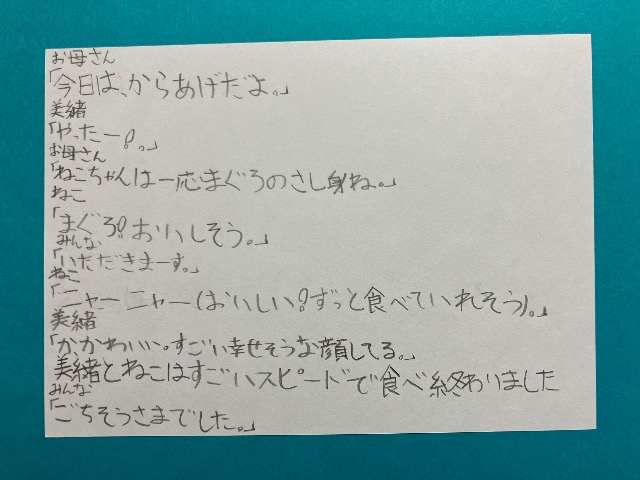 お母さん
「今日は、からあげだよ。」
美緒
「やったー!。」
お母さん
「ねこちゃんは一応まぐろのさし身ね。」
ねこ
「まぐろ!おいしそう。」
みんな
「いただきまーす。」
ねこ
「ニャーニャー(おいしい!ずっと食べていれそう)。」
美緒
「か、かわいい。すごい幸せそうな顔してる。」
美緒とねこはすごいスピードで食べ終わりました
みんな
「ごちそうさまでした。」